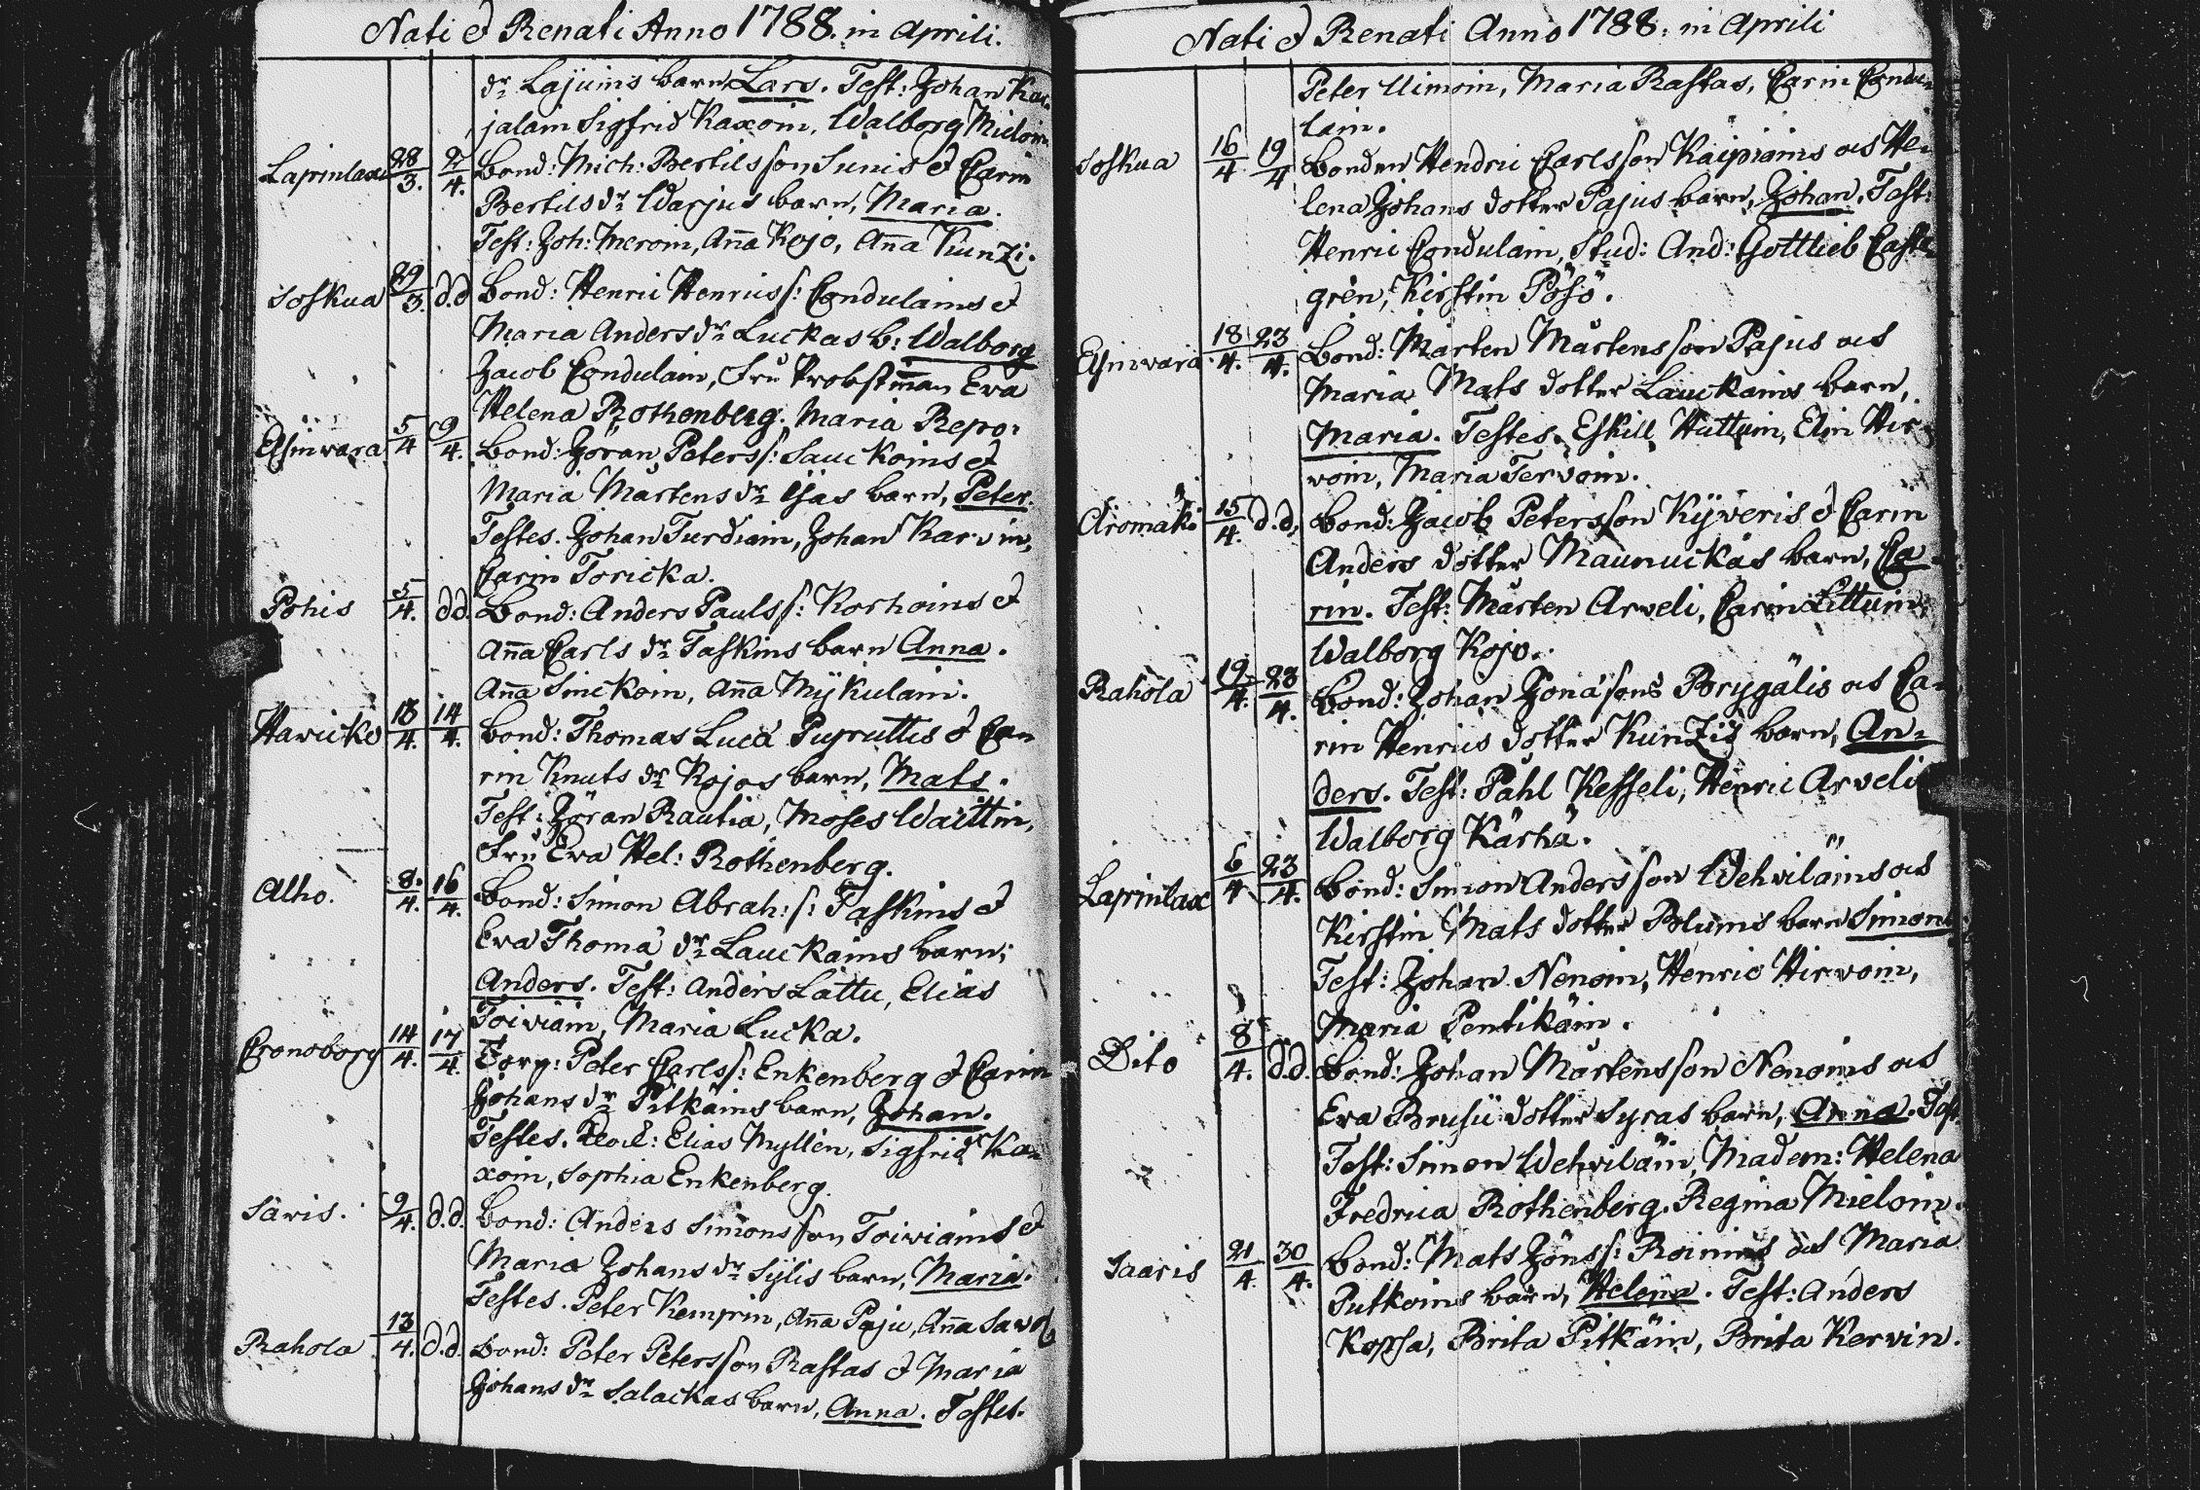 Nati & Renati Anno 1788. in Aprili.
dr Lajuins barn Lars. Test: Johan Kar-
jalain Sigfrid Kaxoin, Walborg Mieloin.
Lapinlax 28/3. 2/4. Bond: Mich: Bertilsson Sunis & Carin
Bertils dr Warjus barn, Maria.
Test: Joh: Meroin, Aña Kojo, Aña Kunzi.
Soskua 29/3. d.d Bond: Henric Henrics s: Condulains &
Maria Anders dr Luckas b: Walborg
Jacob Condulain, Fru Probstiñan Eva
Helena Rothenberg. Maria Repo.
Elsinvara 5/4 9/4. Bond: Göran Peters s: Sauckoins &
Maria Mårtens dr Ijas barn, Peter.
Testes. Johan Turdiain, Johan Karvin,
Carin Toricka.
Pohis 5/4. dd. Bond: Anders Pauls s: Korhoins &
Aña Carls dr Taskins barn Anna.
Aña Sinckoin, Aña Mykulain.
Havicko 13/4. 14/4. Bond: Thomas Lucä Pupruttis & Ca-
rin Knuts dr Kojos barn, Mats.
Test: Jöran Rautia, Moses Waittin,
Fru Eva Hel: Rothenberg.
Alho. 8/4. 16/4. Bond: Simon Abrah: s: Taskins &
Eva Thomä dr Lauckains barn;
Anders. Test: Anders Lättu, Elias
Toiviain, Maria Lucka.
Cronoborg 14/4. 17/4 Torp: Peter Carls s: Enkenberg & Carin
Johans dr Pitkäins barn, Johan.
Testes. Elias Myllen, Sigfrid Ka-
xoin, Sophia Enkenberg.
Saris. 9/4. d.d. Bond: Anders Simonsson Toiviains &
Maria Johans dr Sylis barn, Maria.
Testes. Peter Kemppin, Aña Paju, Aña
Rahola 13/4. d.d. Bond: Peter Petersson Rastas & Maria
Johans dr Salackas barn, Anna. Testes.
Nati & Renati Anno 1788. in Aprili
Peter Uimoin, Maria Rastas, Carin Condu-
lain.
Soskua 16/4 19/4 Bonden Hendric Carlsson Kaipiains och He-
lena Johans dotter Pajus barn, Johan. Test:
Henric Condulain, Stud: And: Gottlieb Castr-
grèn, Kirstin Pösö.
Elsinvara 18/4. 23/4. Bond: Mårten Mårtensson Pajus och
Maria Mats dotter Lauckains barn,
Maria. Testes. Eskill Huttuin, Elin Hir-
voin, Maria Tervoin.
Aromäki 15/4. d.d. Bond: Jacob Petersson Kyveris & Carin
Anders dotter Maunuckas barn, Ca-
rin. Test: Mårten Arveli, Carin Littuin,
Walborg Kojo.
Rahola 19/4. 23/4. Bond: Johan Jonäsons Porygälis och Ca-
rin Henrics dotter Kunzis barn, An-
ders. Test: Påhl Kesseli, Henric Arveli
Walborg Kärhä.
Lapinlax 6/4 23/4. Bond: Simon Andersson Wehviläins och
Kirstin Mats dotter Polums barn Simon.
Test: Johan Nenoin, Henric Hirvoin,
Maria Pentikäin.
Dito 8/4. d.d. Bond: Johan Mårtensson Nenoins och
Eva Brusii dotter Syras barn, Anna. Test.
Test: Simon Wehviläin, Madem: Helena
Fredrica Rothenberg. Regina Mieloin.
Saaris 21/4. 30/4. Bond: Mats Jöns s: Roinins och Maria
Putkoins barn, Helena. Test: Anders
Kopsa, Brita Pitkäin, Brita Kervin.